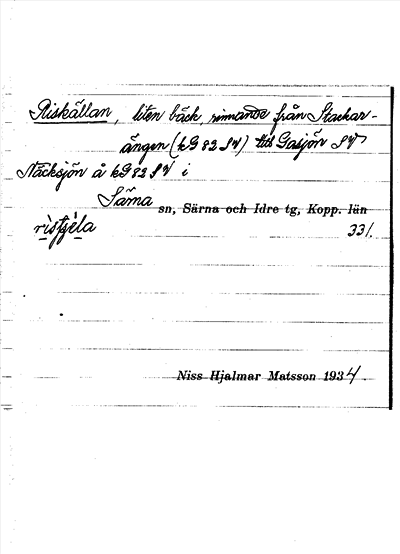 Riskällan, liten bäck, rinnande från Stackar-
ängen (kG 82 SV) till Gasjön SV
Näcksjön å kG 82 SV i
Särna sn, Särna och Idre tg, Kopp. län
risţjela 331.
Niss Hjalmar Matsson 1934.